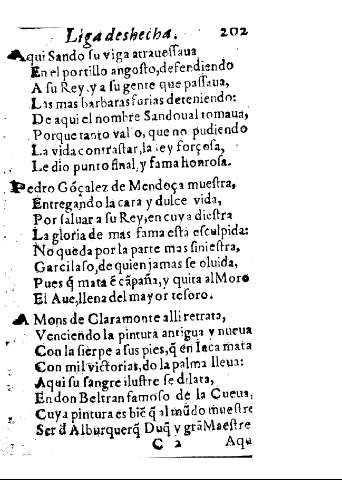 Liga deshecha. 202
Aqui Sando su viga atrauessaua
En el portillo angosto, defendiendo
A su Rey, y a su gente que passaua,
Las mas barbaras furias deteniendo:
De aqui el nombre Sandoual tomaua,
Porque tanto valio, que no pudiendo
La vida contrastar, la ley forçosa,
Le dio punto final, y fama honrosa.
Pedro Gõçalez de Mendoça muestra,
Entregando la cara y dulce vida,
Por saluar a su Rey, en cuya diestra
La gloria de mas fama está esculpida:
No queda por la parte mas siniestra,
Garcilaso, de quien jamas se oluida,
Pues q̃ mata ẽ cãpaña, y quita al Moro
El Aue, llena del mayor tesoro.
A Mons de Claramonte alli retrata,
Venciendo la pintura antigua y nueua
Con la sierpe a sus pies, q̃ en Iaca mata
Con mil victorias, do la palma lleua:
Aqui su sangre ilustre se dilata,
En don Beltran famoso de la Cueua,
Cuya pintura es biẽ q̃ al mũdo muestre
Ser d̃ Alburquerq̃ Duq̃ y grã Maestre
C 2 Aqu